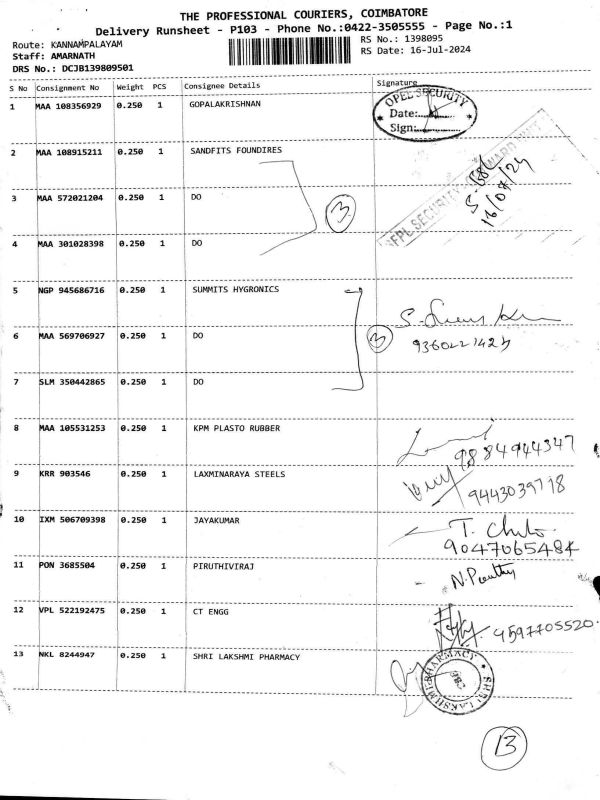 THE PROFESSIONAL COURIERS, COIMBATORE
Delivery Runsheet - P103 - Phone No.:0422-3505555 - Page No.:1
Route: KANNAMPALAYAM
RS No.: 1398095
Staff: AMARNATH
RS Date: 16-Jul-2024
DRS No.: DCJB139809501
S No Consignment No Weight PCS Consignee Details Signature
1 MAA 108356929 0.250 1 GOPALAKRISHNAN
OPEL SECURITY
Date:
Sign:
2 MAA 108915211 0.250 1 SANDFITS FOUNDIRES
3 MAA 572021204 0.250 1 DO
3
16/07/24
SFPL SECURITY
4 MAA 301028398 0.250 1 DO
5 NGP 945686716 0.250 1 SUMMITS HYGRONICS
6 MAA 569706927 0.250 1 DO
3
7 SLM 350442865 0.250 1 DO
8 MAA 105531253 0.250 1 KPM PLASTO RUBBER
9884944347
9 KRR 903546 0.250 1 LAXMINARAYA STEELS
9443039718
10 IXM 506709398 0.250 1 JAYAKUMAR
9047065484
11 PON 3685504 0.250 1 PIRUTHIVIRAJ
12 VPL 522192475 0.250 1 CT ENGG
13 NKL 8244947 0.250 1 SHRI LAKSHMI PHARMACY
SHRI LAKSHMI PHARMACY
13